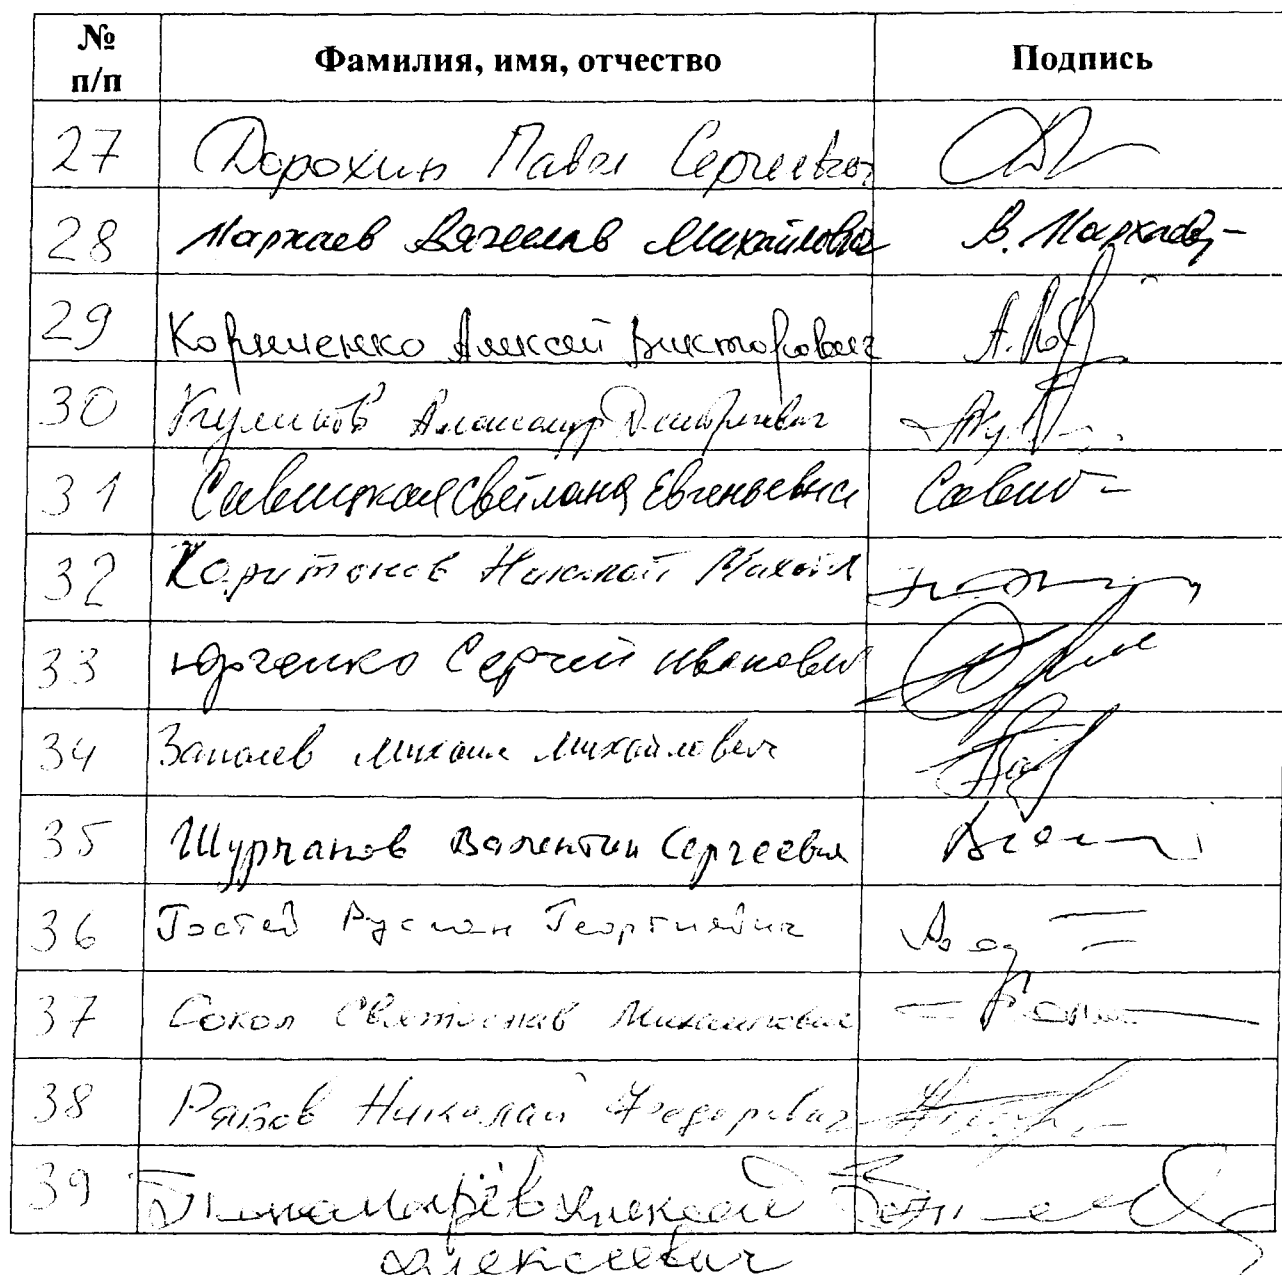 № п/п Фамилия, имя, отчество Подпись
27 Дорохин Павел Сергеевич
28 Мархаев Вячеслав Михайлович В. Мархаев
29 Корниенко Алексей Викторович
30 Куликов Александр Дмитриевич
31 Савицкая Светлана Евгеньевна Савиц
32 Харитонов Николай Михайл
33 Юрченко Сергей Иванович
34 Заполев Михаил Михайлович
35 Шурчанов Валентин Сергеевич
36 Гостев Руслан Георгиевич
37 Сокол Святослав Михайлович
38 Рябов Николай Федорович
39 Пономарёв Алексей
Алексеевич